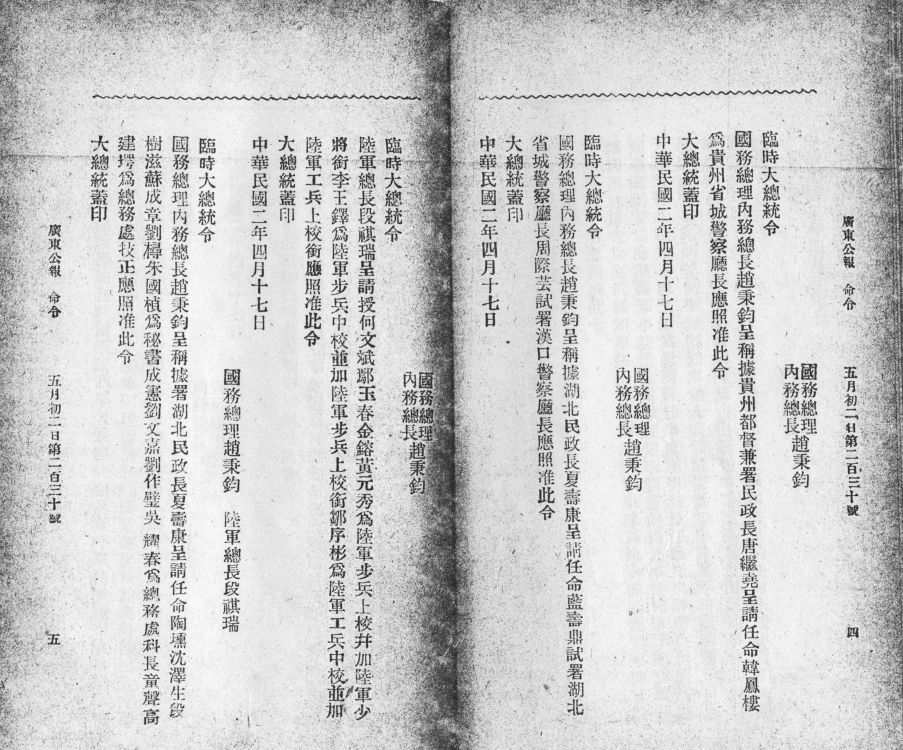 廣東公報 命令 五月初二日第二百三十號 四
國務總理
內務總長趙秉鈞
臨時大總統令
國務總理內務總長趙秉鈞呈稱據貴州都督兼署民政長唐繼堯呈請任命韓鳳樓
爲貴州省城警察廳長應照准此令
大總統蓋印
中華民國二年四月十七日
國務總理
內務總長趙秉鈞
臨時大總統令
國務總理內務總長趙秉鈞呈稱據湖北民政長夏壽康呈請任命藍壽鼎試署湖北
省城警察廳長周際芸試署漢口警察廳長應照准此令
大總統蓋印
中華民國二年四月十七日
國務總理
內務總長趙秉鈞
臨時大總統令
陸軍總長段祺瑞呈請授何文斌鄢玉春金鎔黃元秀爲陸軍步兵上校幷加陸軍少
將銜李王鐸爲陸軍步兵中校並加陸軍步兵上校銜鄒序彬爲陸軍工兵中校並加
陸軍工兵上校銜應照准此令
大總統蓋印
中華民國二年四月十七日
國務總理趙秉鈞 陸軍總長段祺瑞
臨時大總統令
國務總理內務總長趙秉鈞呈稱據署湖北民政長夏壽康呈請任命陶壎沈澤生段
樹滋蘇成章劉樽朱國楨爲秘書成憲劉文嘉劉作璧吳耀春爲總務處科長童聲高
建堮爲總務處技正應照准此令
大總統蓋印
廣東公報 命令 五月初二日第二百三十號 五